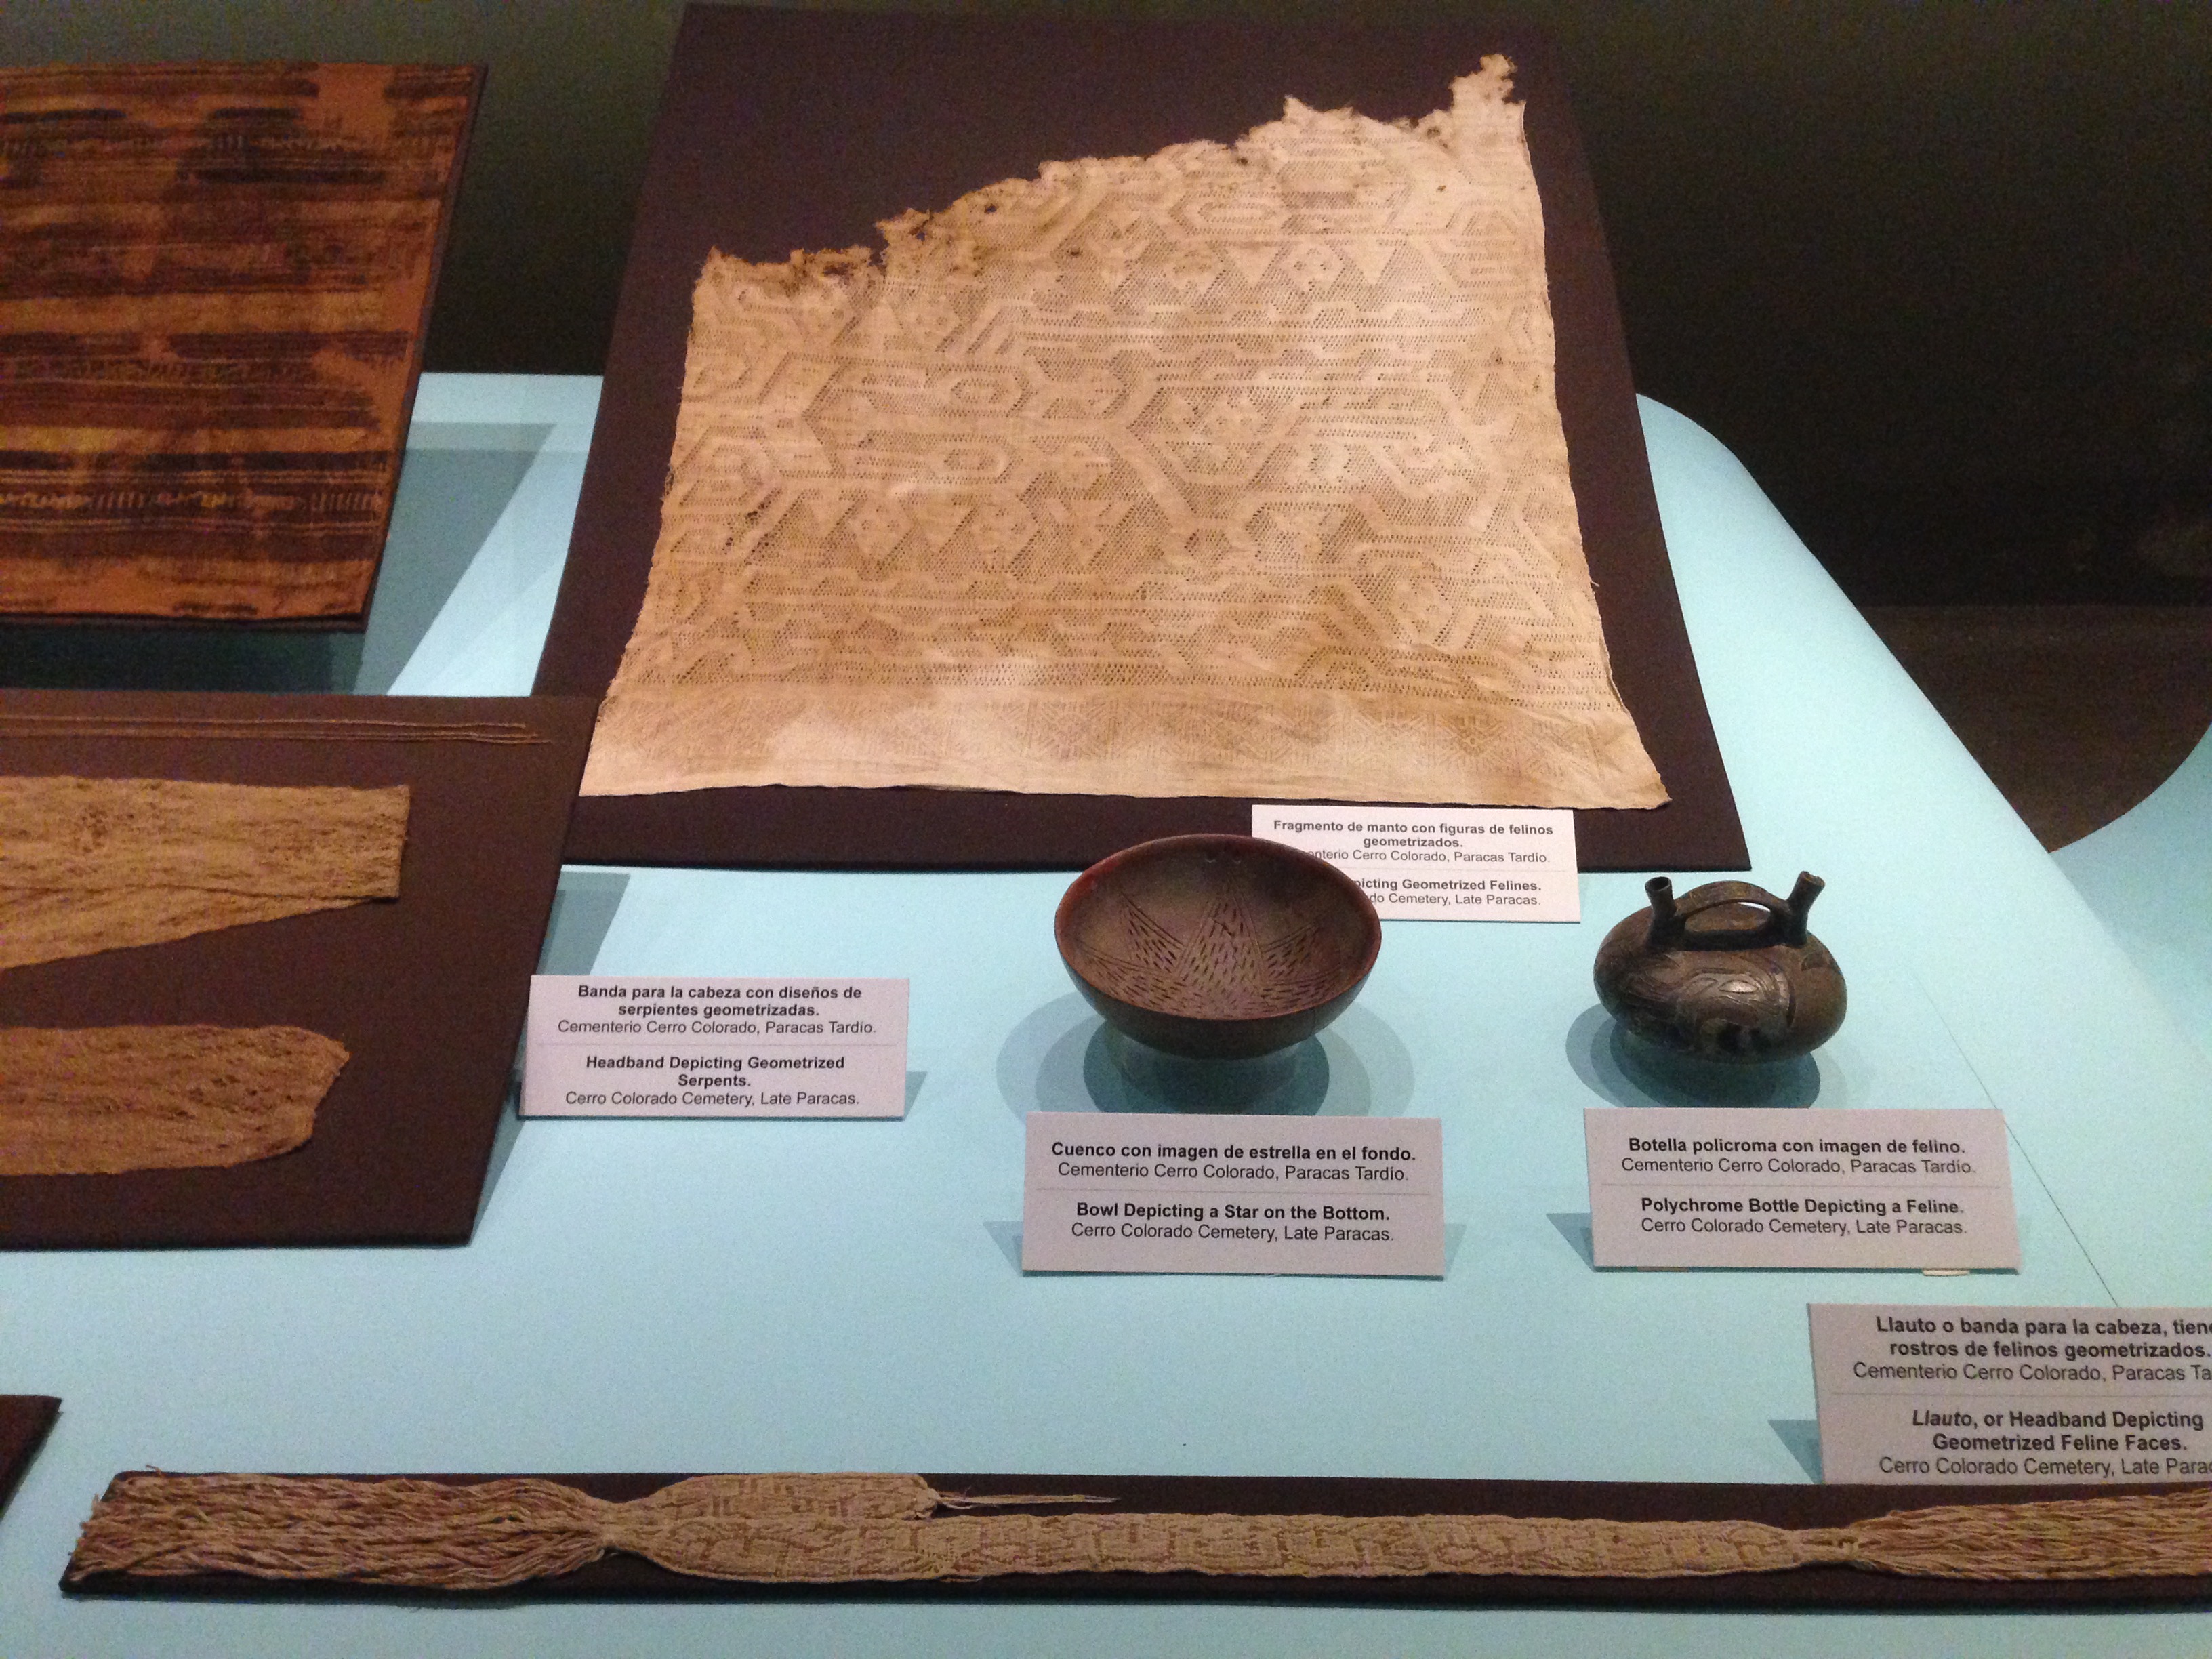 Fragmento de manto con figuras de felinos
geometrizados.
Cerro Colorado, Paracas Tardío.
Geometrized Felines.
Cemetery, Late Paracas.
Banda para la cabeza con diseños de
serpientes geometrizadas.
Cementerio Cerro Colorado, Paracas Tardío.
Headband Depicting Geometrized
Serpents.
Cerro Colorado Cemetery, Late Paracas.
Cuenco con imagen de estrella en el fondo.
Cementerio Cerro Colorado, Paracas Tardío.
Bowl Depicting a Star on the Bottom.
Cerro Colorado Cemetery, Late Paracas.
Botella policroma con imagen de felino.
Cementerio Cerro Colorado, Paracas Tardío.
Polychrome Bottle Depicting a Feline.
Cerro Colorado Cemetery, Late Paracas.
Llauto o banda para la cabeza,
rostros de felinos geometrizados.
Cementerio Cerro Colorado, Paracas
Llauto, or Headband Depicting
Geometrized Feline Faces.
Cerro Colorado Cemetery, Late